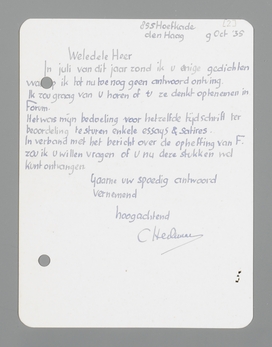 255 Hoefkade
den Haag 9 Oct '35
Weledele Heer
In juli van dit jaar zond ik u enige gedichten
waarop ik tot nu toe nog geen antwoord ontving.
Ik zou graag van U horen of U ze denkt op te nemen in
Forum.
Het was mijn bedoeling voor hetzelfde tijdschrift ter
beoordeling te sturen enkele essays & satires.
In verband met het bericht over de opheffing van F.
zou ik u willen vragen of U nu deze stukken wel
kunt ontvangen.
Gaarne uw spoedig antwoord
vernemend
hoogachtend